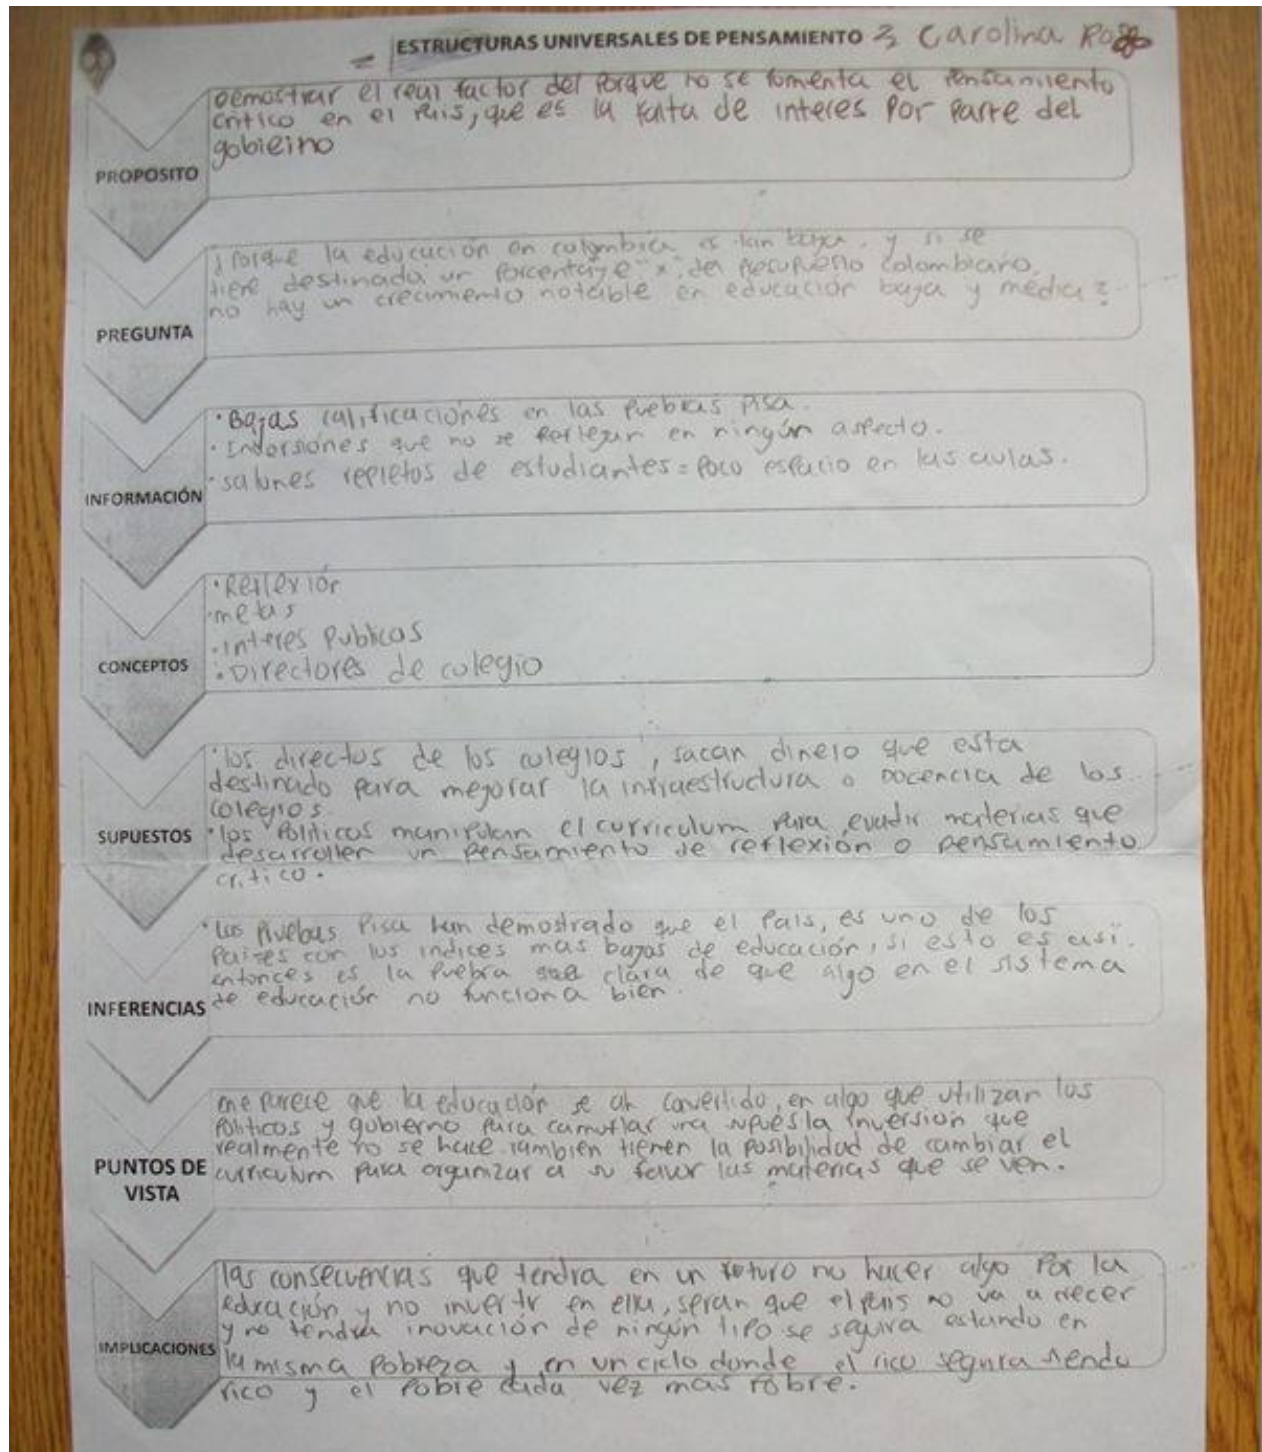 ESTRUCTURAS UNIVERSALES DE PENSAMIENTO Carolina
PROPOSITO
Demostrar el real factor del Porque no se fomenta el Pensamiento
critico en el Pais, que es la falta de interes Por Parte del
gobierno
PREGUNTA
¿Porque la educación en colombia es tan baja, y si se
tiene destinado un Porcentaje "x" del Presupuesto colombiano,
no hay un crecimiento notable en educación baja y media?
INFORMACIÓN
• Bajas calificaciones en las Pruebas Pisa.
• que no se Reflejan en ningún aspecto.
• salones repletos de estudiantes = Poco espacio en las aulas.
CONCEPTOS
• Reflexión
• metas
• Interes Publicos
• Directores de colegio
SUPUESTOS
• los de los colegios, sacan dinero que esta
destinado para mejorar la infraestructura o Docencia de los
colegios.
• los Politicos manipulan el curriculum Para evadir materias que
desarrollen un Pensamiento de reflexión o pensamiento
critico.
INFERENCIAS
• Las Pruebas Pisa han demostrado que el Pais, es uno de los
Paises con los indices mas bajos de educación, si esto es asi.
entonces es la clara de que algo en el sistema
de educación no funciona bien.
PUNTOS DE
VISTA
me parece que la educación se ah convertido, en algo que utilizan los
Politicos y gobierno Para camuflar una supuesta inversión que
realmente no se hace también tienen la posibilidad de cambiar el
curriculum para organizar a su favor las materias que se ven.
IMPLICACIONES
las consecuencias que tendra en un futuro no hacer algo Por la
educación y no invertir en ella, seran que el Pais no va a crecer
y no tendra inovación de ningún tipo se seguira estando en
la misma Pobreza y en un ciclo donde el rico seguira siendo
rico y el Pobre cada vez mas Pobre.